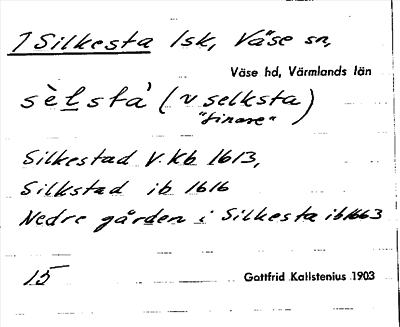 1 Silkesta lsk, Väse sn,
Väse hd, Värmlands län
sè̀lsta` (v selksta)
"finare"
Silkestad V.Kb 1613,
Silkstad ib 1616
Nedre gården i Silkesta ib 1663
15
Gottfrid Kallstenius 1903